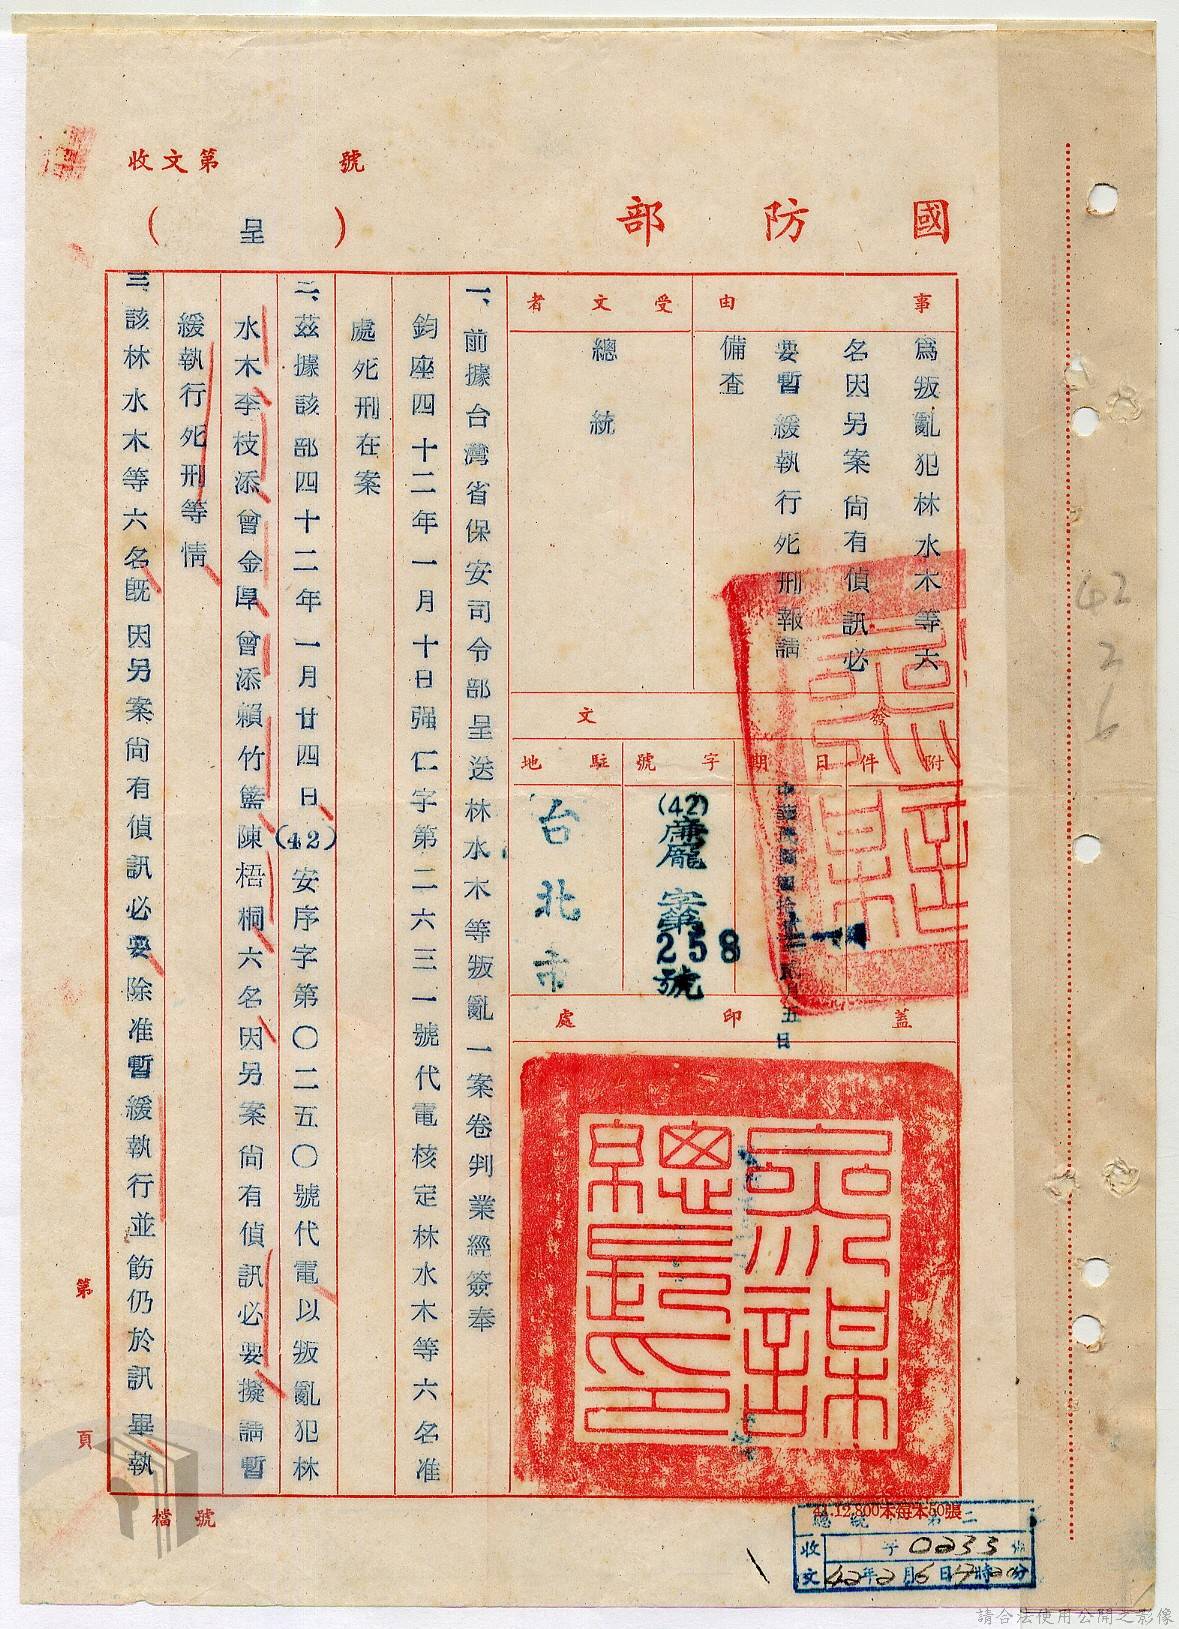 收文第　　　號
國防部
（呈）
事由
為叛亂犯林水木等六
名因另案尚有偵訊必
要暫緩執行死刑報請
備查
受文者
總統
發文
附件
日期
中華民國四拾貳年貳月五日
字號
(42)廉龐字第258號
駐地
台北市
蓋印處
參謀總長之印
一、前據台灣省保安司令部呈送林水木等叛亂一案卷判業經簽奉
鈞座四十二年一月十日强仁字第二六三一號代電核定林水木等六名准
處死刑在案
二、茲據該部四十二年一月廿四日(42)安序字第〇二五〇號代電以叛亂犯林
水木李枝添曾金厚曾添賴竹籃陳梧桐六名因另案尚有偵訊必要擬請暫
緩執行死刑等情
三、該林水木等六名既因另案尚有偵訊必要除准暫緩執行並飭仍於訊畢執
第　頁
檔號
41.12.800本每本50張
總統　第二
收文　字0233號
42年2月6日
42
2
6
請合法使用公開之影像